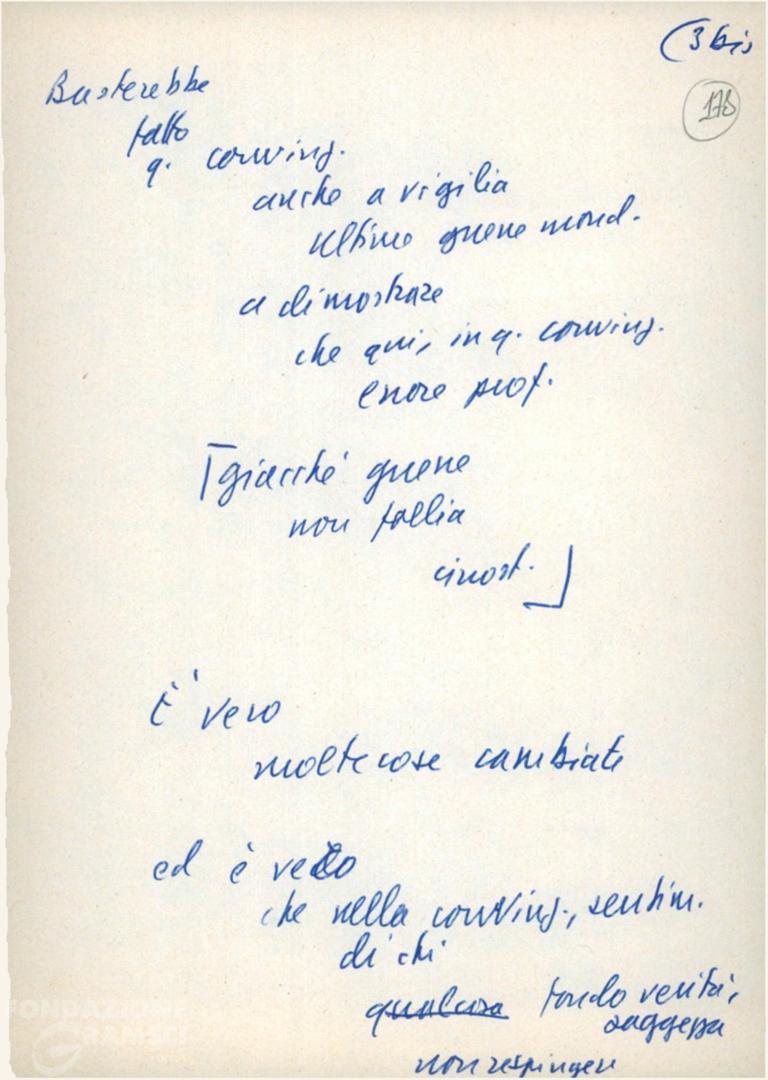 (3 bis
178
Basterebbe
fatto
q. conving.
anche a vigilia
ultime guerre mond.
a dimostrare
che qui, in q. conving.
errore prof.
giacché guerre
non follia
È vero
molte cose cambiate
ed è vero
che nella conving., sentim.
di chi
qualcosa fondo verità,
saggezza
non respingere
FONDAZIONE
GRAMSCI